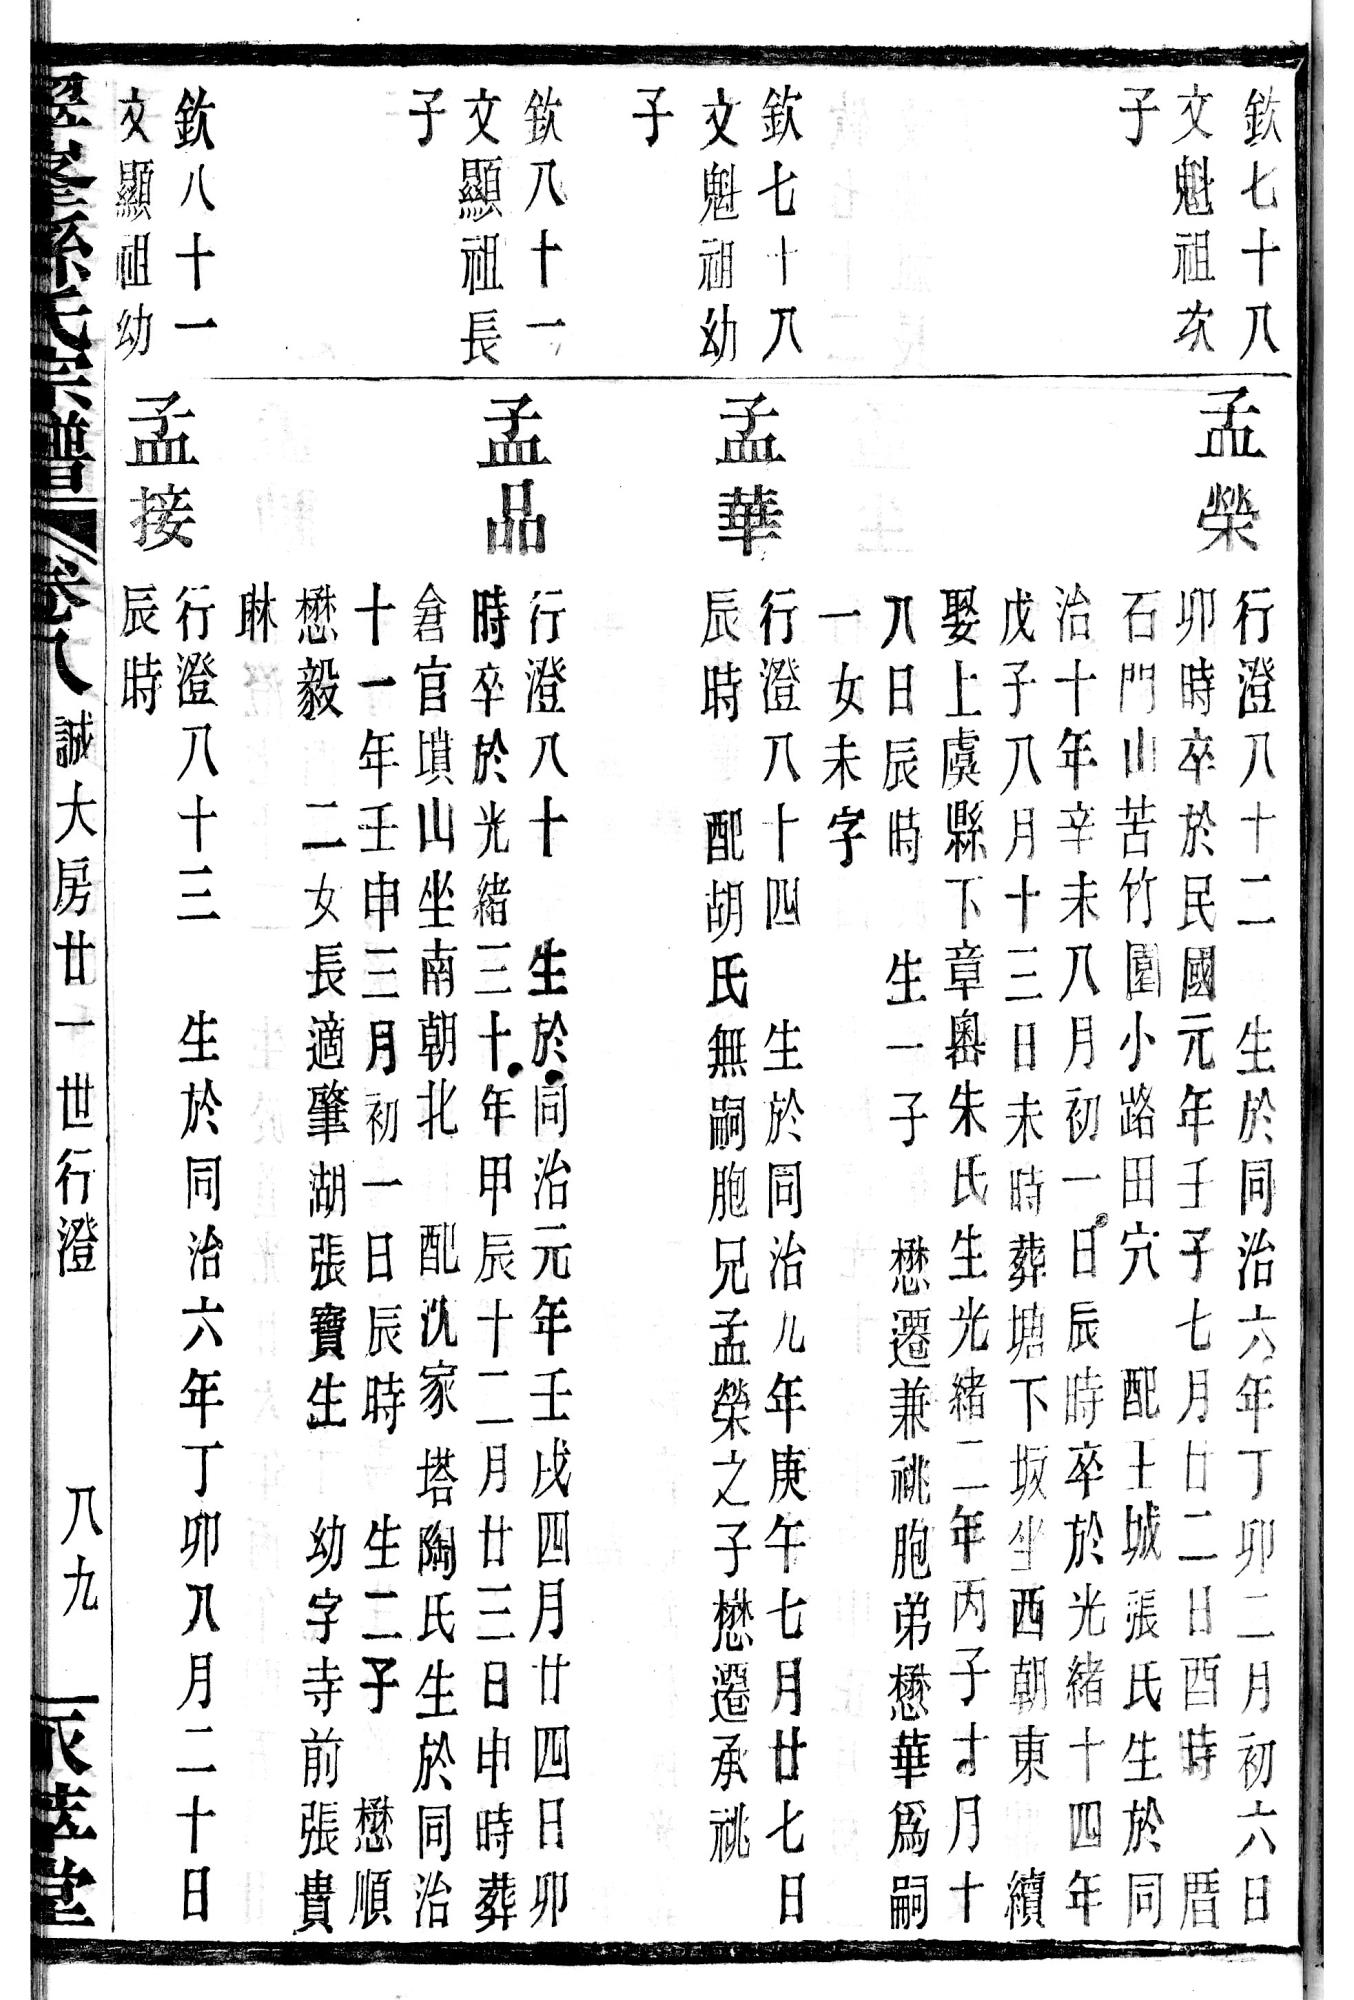 欽七十八
文魁祖次
子
孟榮
行澄八十二　生於同治六年丁卯二月初六日
卯時卒於民國元年壬子七月廿二日酉時　厝
石門山苦竹園小路田穴　配王城張氏生於同
治十年辛未八月初一日辰時卒於光緒十四年
戊子八月十三日未時葬塘下坂坐西朝東　續
娶上虞縣下章嶴朱氏生光緒二年丙子十月十
八日辰時　生一子　懋遷兼祧胞弟懋華爲嗣
一女未字
欽七十八
文魁祖幼
子
孟華
行澄八十四　生於同治九年庚午七月廿七日
辰時　配胡氏無嗣胞兄孟榮之子懋遷承祧
欽八十一
文顯祖長
子
孟品
行澄八十　生於同治元年壬戌四月廿四日卯
時卒於光緒三十年甲辰十二月廿三日申時葬
倉官墳山坐南朝北　配氿家塔陶氏生於同治
十一年壬申三月初一日辰時　生二子　懋順
懋毅　二女長適肇湖張寶生　幼字寺前張貴
㭉
欽八十一
文顯祖幼
孟接
行澄八十三　生於同治六年丁卯八月二十日
辰時
孫氏宗譜
卷八
誠大房廿一世行澄
八九
堂